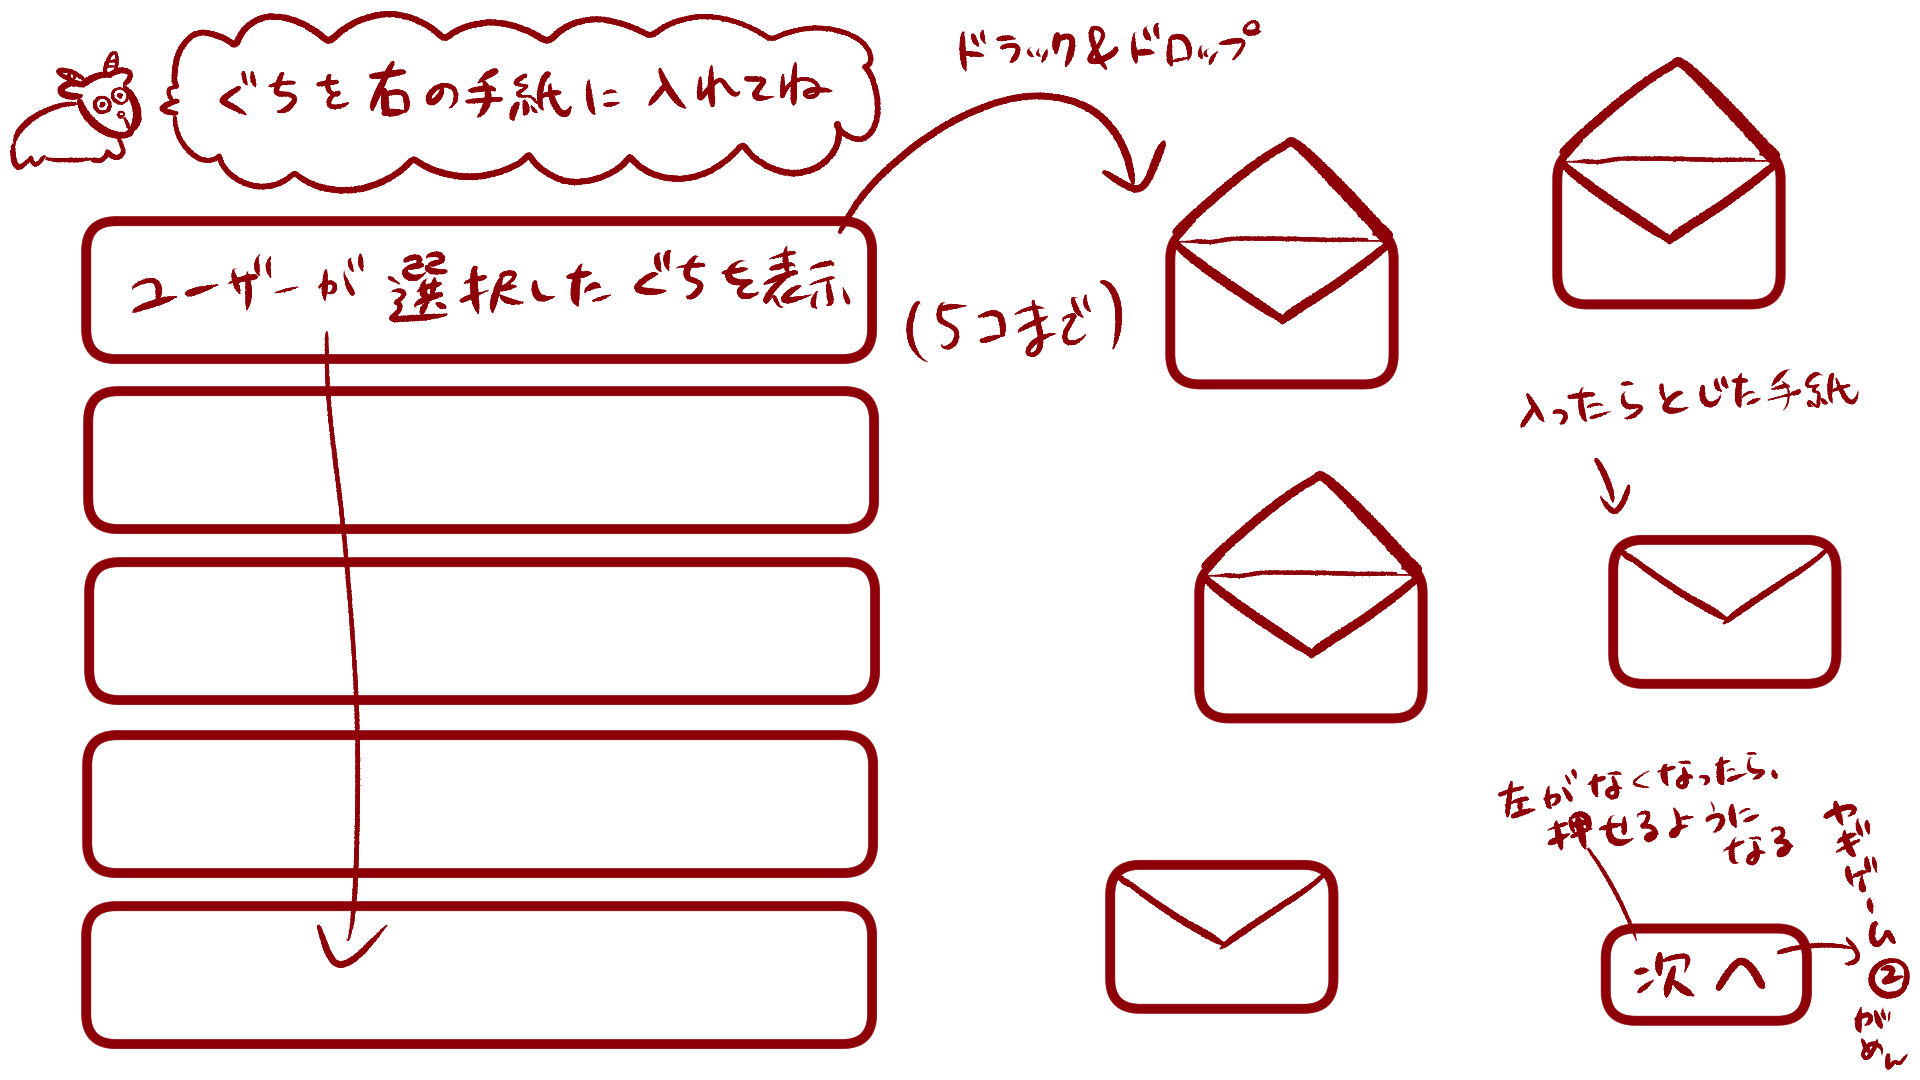 ぐちを右の手紙に入れてね
ドラック&ドロップ
ユーザーが選択したぐちを表示
(5コまで)
入ったらとじた手紙
左がなくなったら、
押せるように
なる
次へ
ヤギゲーム②がめん